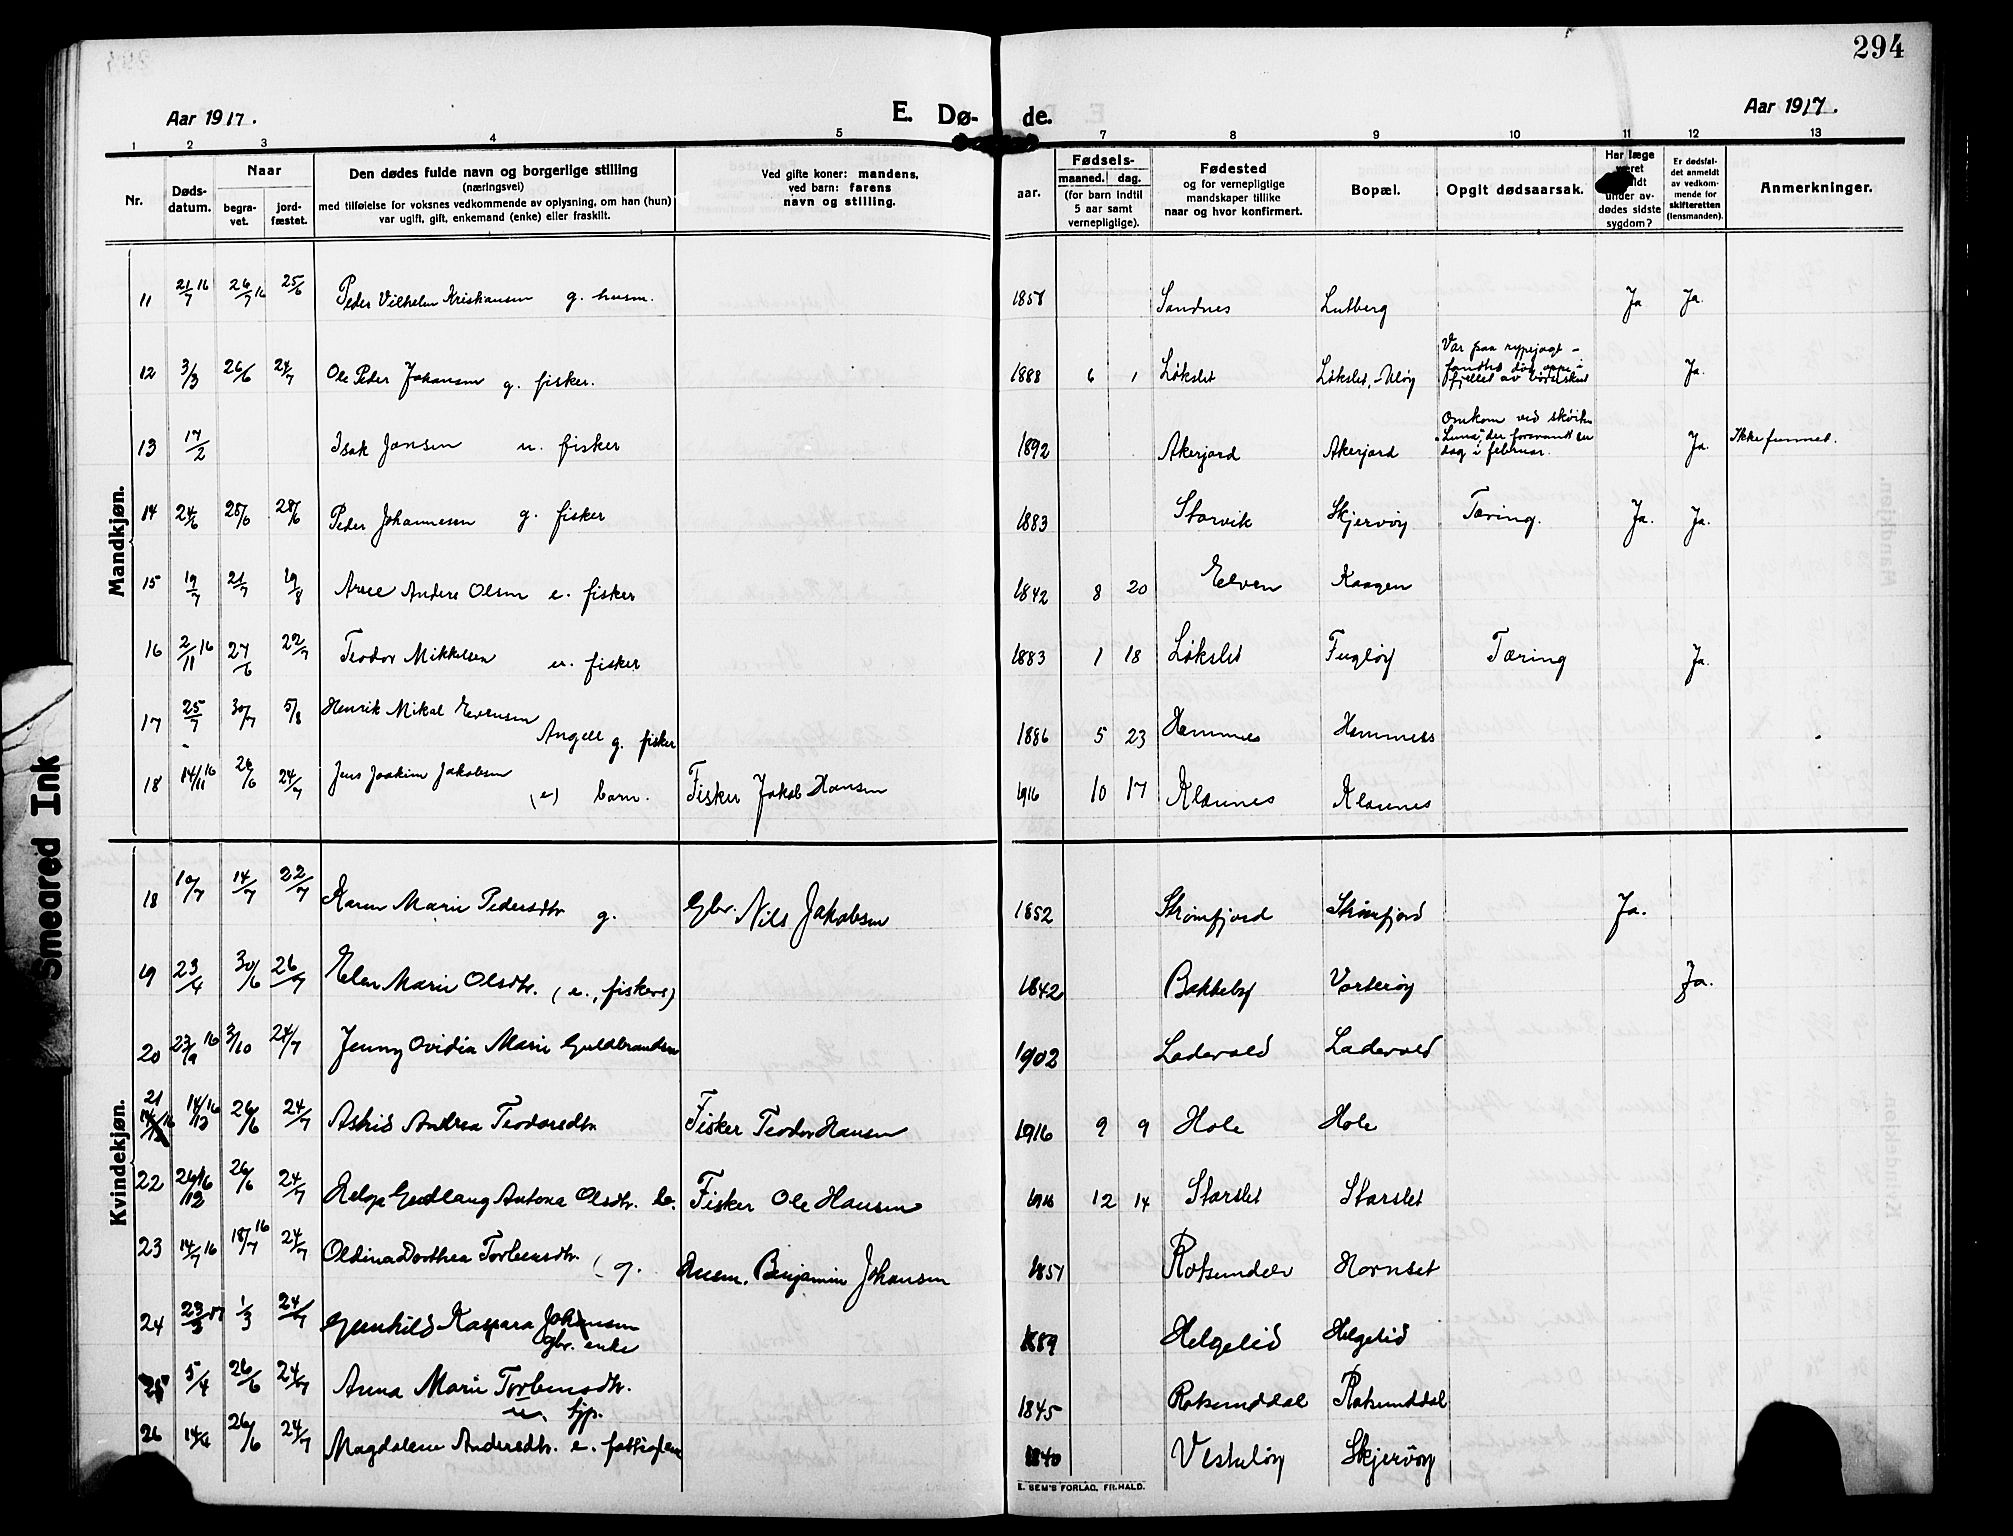 294
Aar 1917.
E. Dø-
de.
Aar 1917.
1 2 3 4 5 7 8 9 10 11 12 13
Nr.
Døds-
datum.
Naar
begra-
vet.
jord-
fæstet.
Den dødes fulde navn og borgerlige stilling
(næringsvei)
med tilføielse for voksnes vedkommende av oplysning, om han (hun)
var ugift, gift, enkemand (enke) eller fraskilt.
Ved gifte koner: mandens,
ved barn: farens
navn og stilling.
aar.
Fødsels-
maaned. dag.
(for barn indtil
5 aar samt
vernepligtige).
Fødested
og for vernepligtige
mandskaper tillike
naar og hvor konfirmert.
Bopæl.
Opgit dødsaarsak.
Har læge
været
under av-
dødes sidste
sygdom?
Er dødsfal-
det anmeldt
av vedkom-
mende for
skifteretten
(lensmanden).
Anmerkninger.
Mandkjøn.
11 21/7 16 26/7 16 25/6 Peder Vilhelm Kristiansen g. husm. 1858 Sandnes Lutberg Ja Ja.
12 3/3 26/6 24/7 Ole Peder Johansen g. fisker. 1888 6 1 Løkslet Løkslet, Uløy Var paa rypejagt - Ja.
13 17/2 Isak Jansen u. fisker 1892 Akerjord Akerjord Omkom ved skøiten
"Luna", der forsvandt en
dag i februar. Ja. Ikke funnet.
14 24/6 28/6 28/6 Peder Johannesen g. fisker 1883 Storvik Skjervøy Tæring. Ja. Ja.
15 19/7 21/7 19/8 Andere Olsen e. fisker 1842 8 20 Elven Kaagen
16 2/11 16 27/6 22/7 Teodor Mikkelsen u. fisker 1883 1 18 Løkslet Fugløy Tæring Ja.
17 25/7 30/7 5/8 Henrik Mikal Evensen
Angell g. fisker 1886 5 23 Hamnnes Hamnnes
18 14/11 16 26/6 24/7 Jens Joakim Jakobsen
(e) barn. Fisker Jakob Hansen 1916 10 17 Klauvnes Klauvnes
Kvindekjøn.
18 10/7 14/7 22/7 Karen Marie Pedersdtr. g. Gbr. Nils Jakobsen 1852 Strømfjord Strømfjord Ja.
19 23/4 30/6 26/7 Elen Marie Olsdtr. (e., fiskers) 1842 Bakkeby Vorterøy Ja.
20 23/9 16 3/10 24/7 Jenny Ovidia Marie Guldbrandsen 1902 Ladevold Ladevold
21 14/12 16 26/6 24/7 Astrid Andrea Teodorsdtr. Fisker Teodor Hansen 1916 9 9 Hole Hole
22 26/12 16 26/6 24/7 Helga Gudlaug Antona Olsdtr. b. Fisker Ole Hansen 1916 12 14 Storslet Storslet
23 14/7 16 18/7 16 24/7 Oldina Dorthea Torbensdtr. (g. Husm. Benjamin Johansen 1851 Rotsundelv Hornset
24 23/3 17 1/3 24/7 Gunhild Kaspara Johansen
gbr. enke 1889 Helgelid Helgelid
25 5/4 26/6 24/7 Anna Marie Torbensdtr.
u. tjp. 1845 Rotsunddal Rotsunddal
26 14/4 26/6 24/7 Magdalene Andersdtr. e. 1840 Skjervøy
E. SEM'S FORLAG, FR.HALD.
Smeared Ink